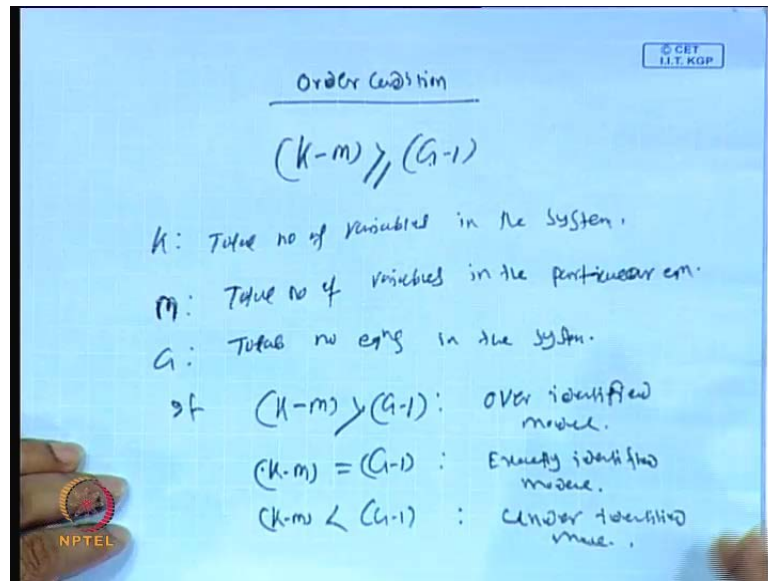 © CET
I.I.T. KGP
Order Condition
(K-m) ⩾ (G-1)
K: Total no of variables in the system.
m: Total no of variables in the particular eqn.
G: Total no eqns in the system.
If (K-m) > (G-1): Over identified
model.
(K-m) = (G-1) : Exactly identified
model.
(K-m) < (G-1) : Under identified
model.
NPTEL